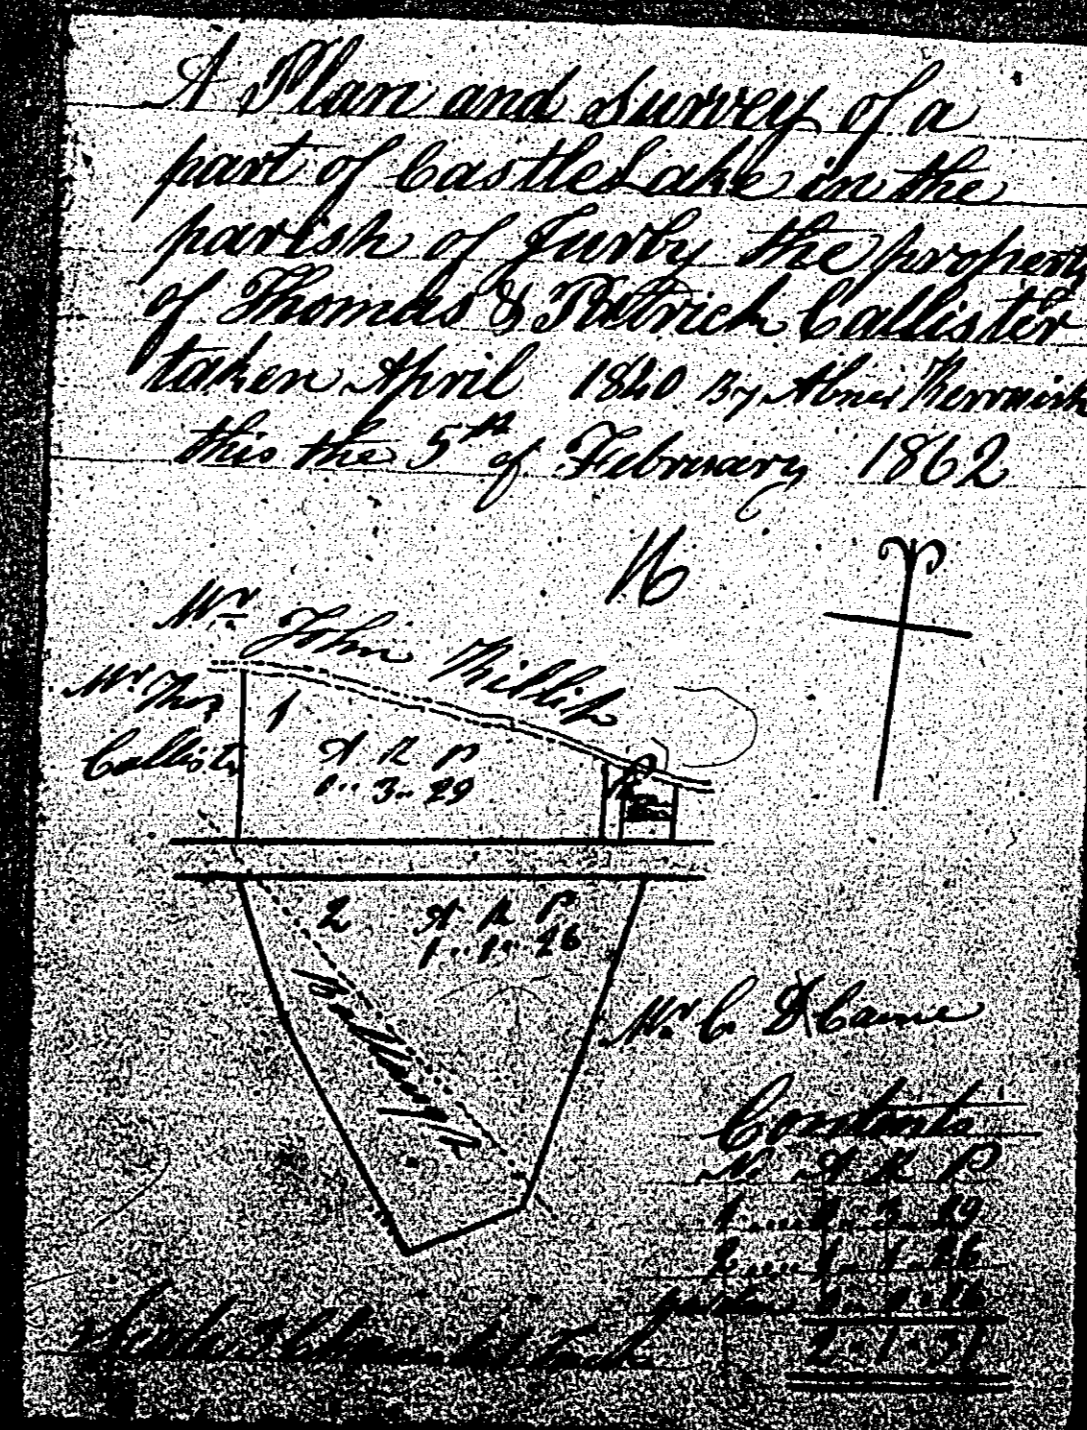 A Plan and Survey of a
part of Castle Lake in the
parish of Jurby the property
of Thomas & Patrick Callister
taken April 1840 By Abner
this the 5th of February 1862
Mr. John
Mr. Thos
Callister
1
A R P
0.. 3.. 29
2
A R P
1.. 1.. 26
Mr. C Caine
Contents
No. A R P
1 3.. 29
2 1.. 1.. 26
2.. 1.. 31